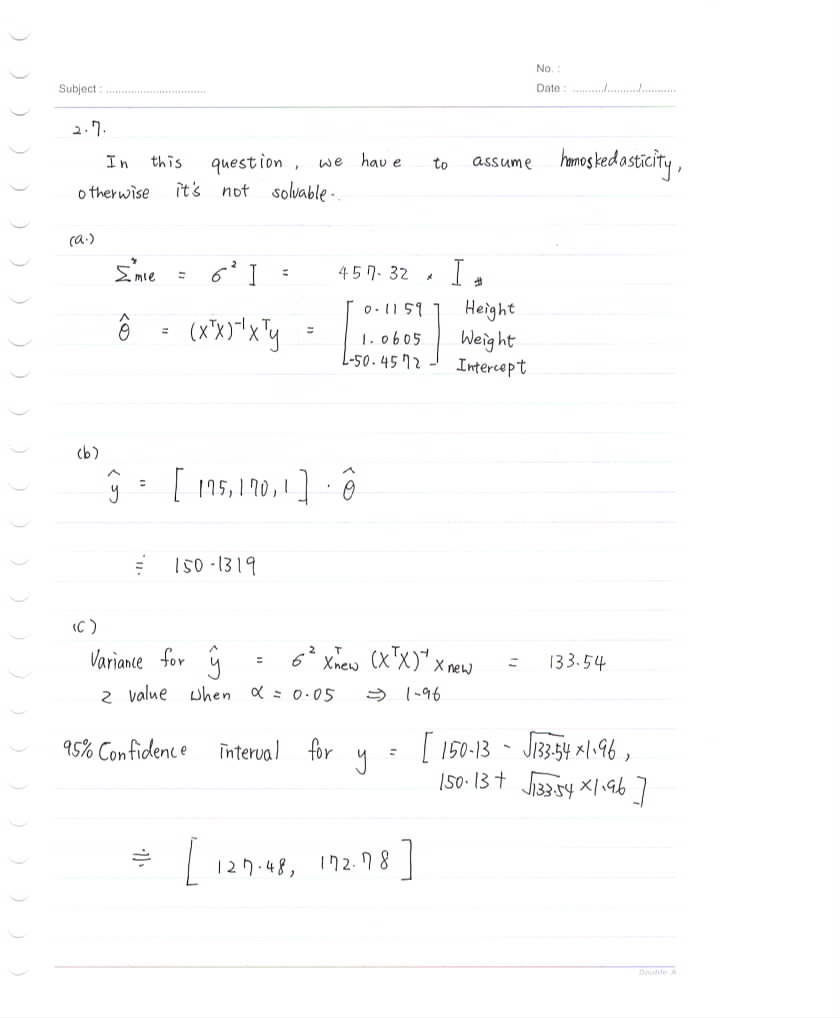 No. :
Subject : ................................ Date : ........../........../...........
2.7.
In this question, we have to assume homoskedasticity,
otherwise it's not solvable.
(a.)
Σ*mle = σ² I = 457.32 * I #
θ̂ = (XᵀX)⁻¹XᵀY = [ 0.1159 Height
1.0605 Weight
-50.4572 ] Intercept
(b)
ŷ = [ 175, 170, 1 ] · θ̂
≑ 150.1319
(C)
Variance for ŷ = σ² xᵀnew (XᵀX)⁻¹ xnew = 133.54
z value when α = 0.05 ⇒ 1.96
95% Confidence interval for y = [ 150.13 - √133.54 × 1.96 ,
150.13 + √133.54 × 1.96 ]
≑ [ 127.48, 172.78 ]
Double A